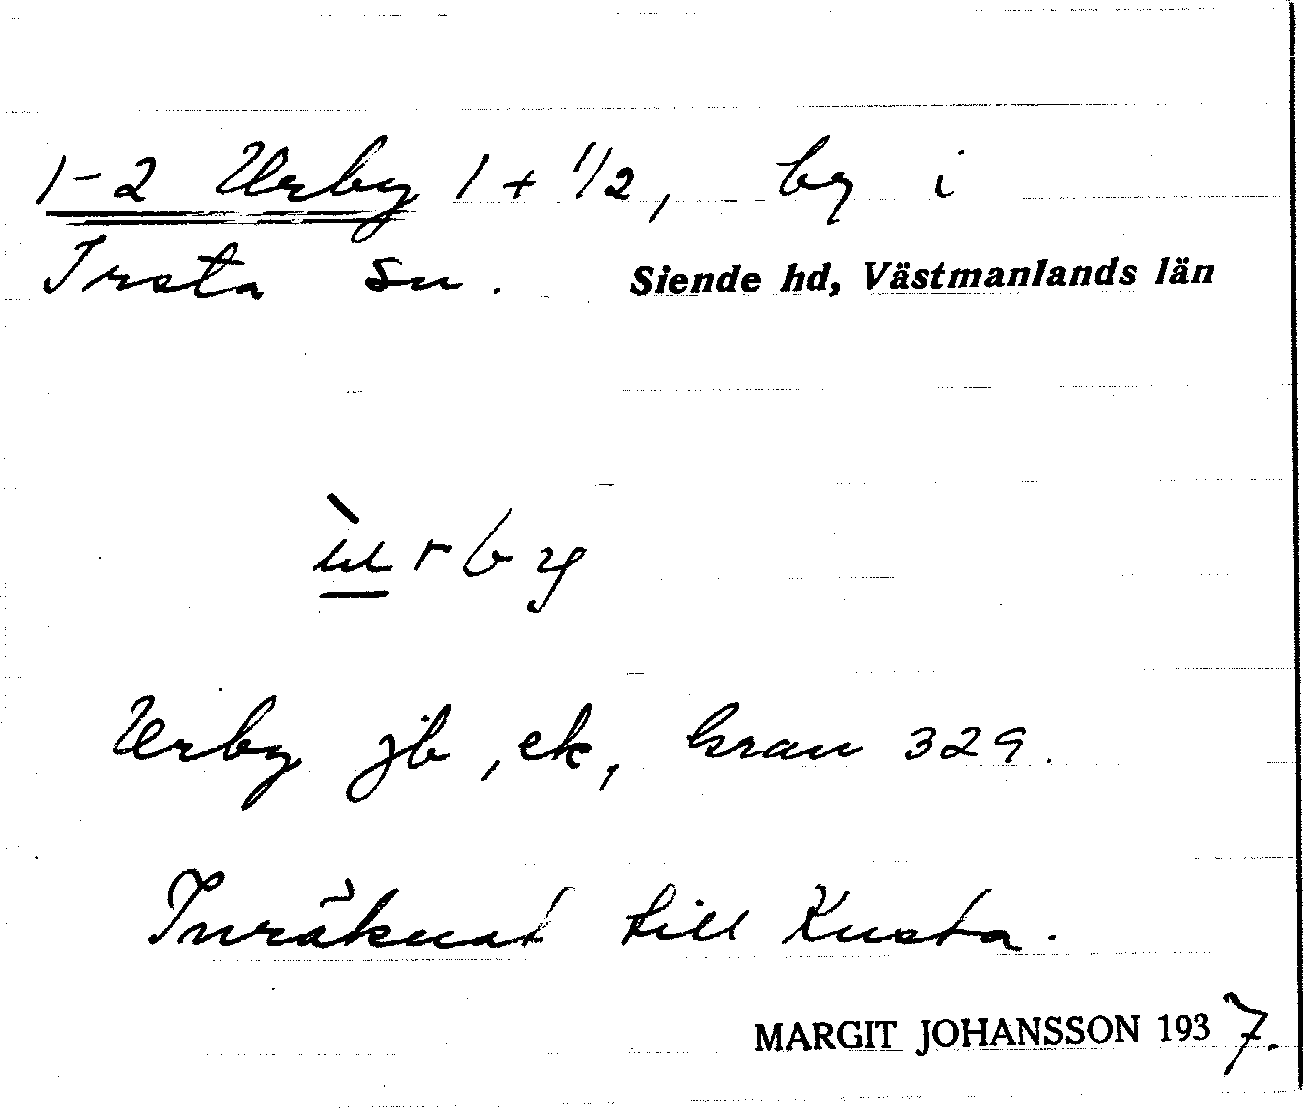 1-2 Urby 1 + 1/2, by i
Irsta sn. Siende hd, Västmanlands län
ùrby
Urby jb, ek, kran 329.
Inräknat till Kusta.
MARGIT JOHANSSON 1937.